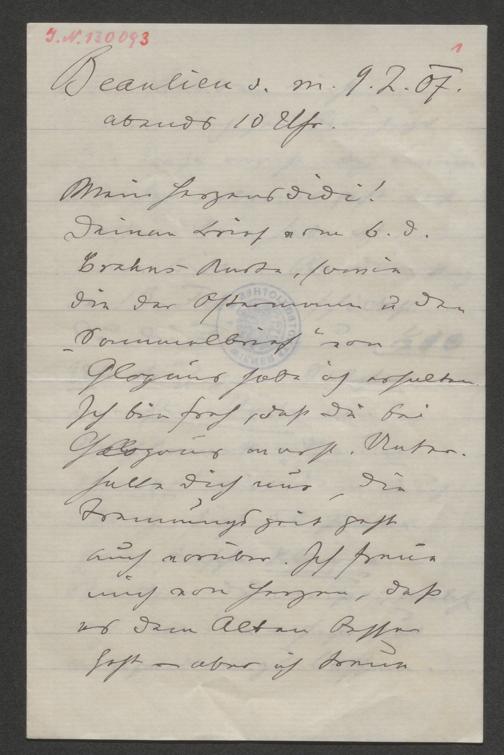 J.N. 130093
1
Beaulieu s. m. 9.2.07.
abends 10 Uhr.
Mein Herzensdidi!
Deinen Brief vom 6. d.
Brahms-Karte, sowie
die der u den
„Sammelbrief" von
Glogaus habe ich erhalten.
Ich bin froh, daß Du bei
Glogaus warst. Unter-
halte Dich nur, die
Trennungszeit geht
auch vorüber. Ich freue
mich von Herzen, daß
es dem Alten besser
geht – aber ich